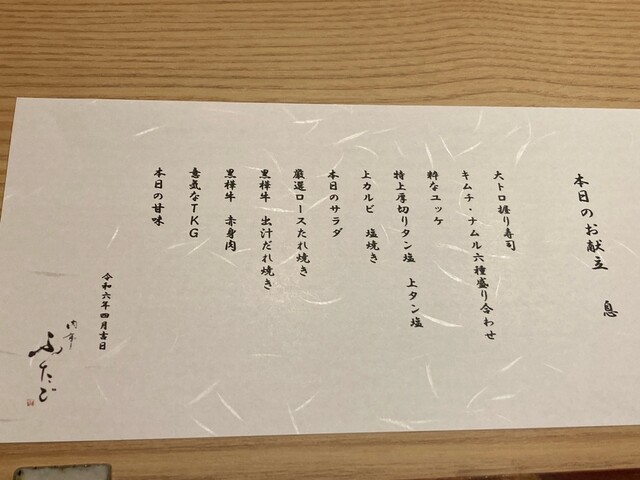 本日のお献立　息
大トロ握り寿司
キムチ・ナムル六種盛り合わせ
粋なユッケ
特上厚切りタン塩　上タン塩
上カルビ　塩焼き
本日のサラダ
厳選ロースたれ焼き
黒樺牛　出汁だれ焼き
黒樺牛　赤身肉
意気なTKG
本日の甘味
令和六年四月吉日
ふたご